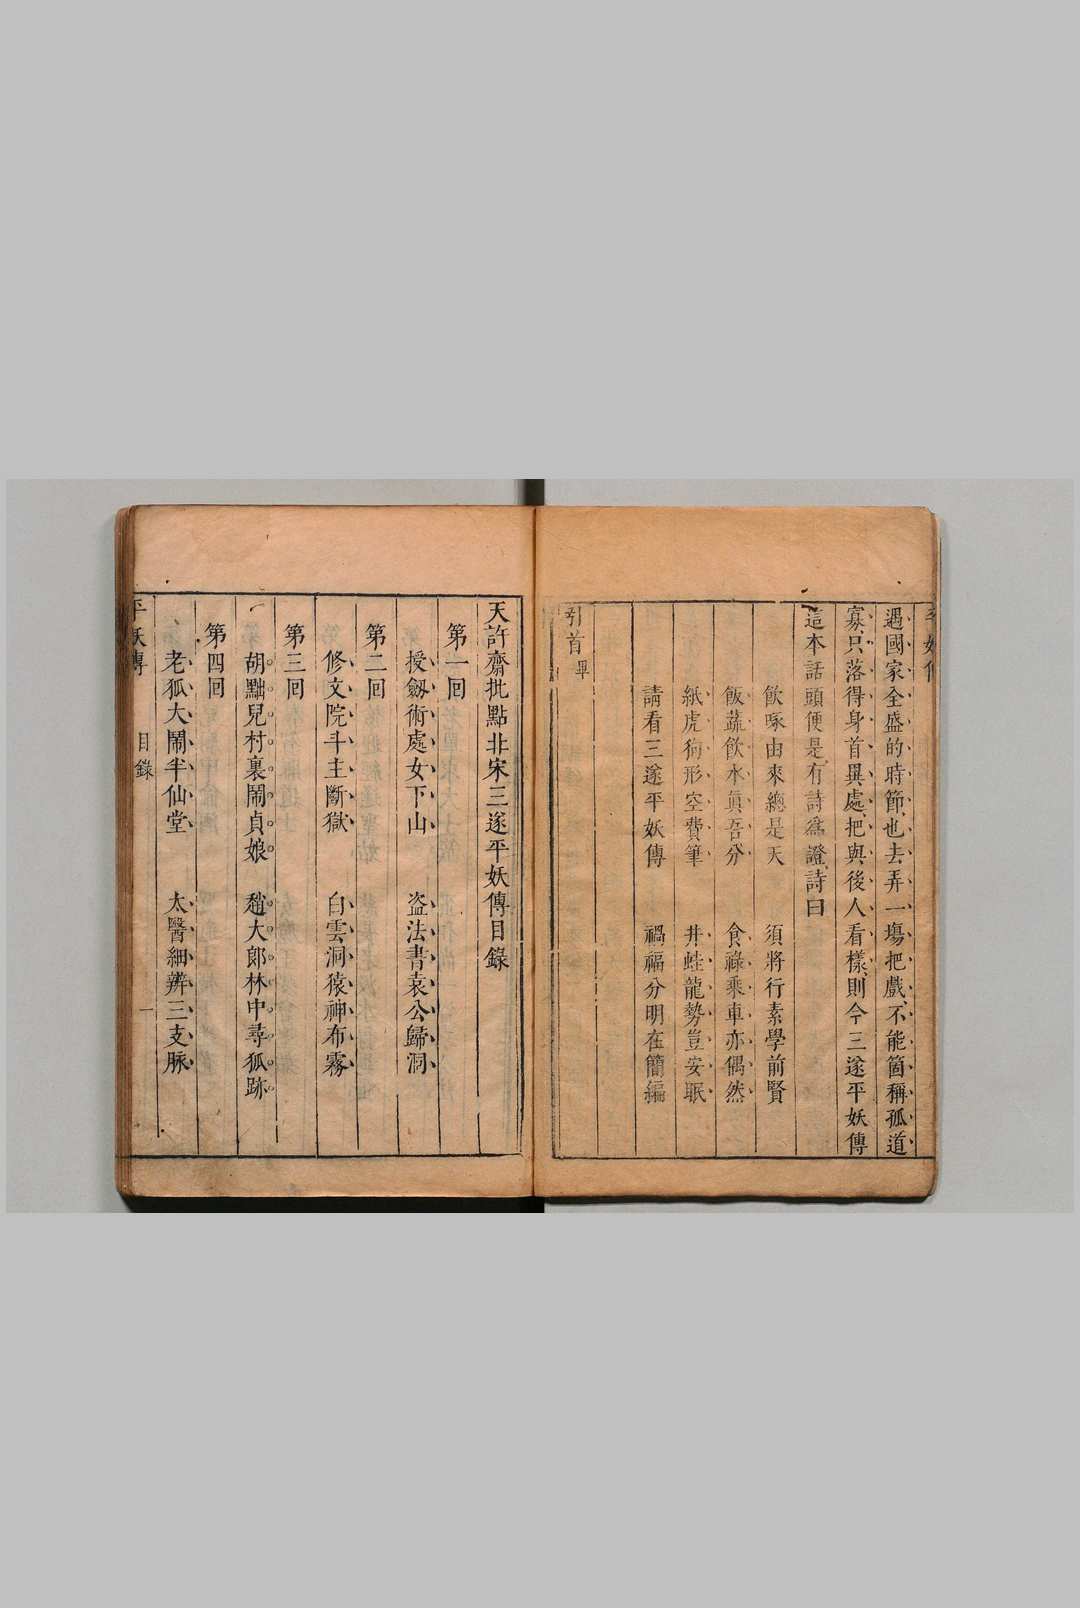 遇國家全盛的時節也去弄一塲把戲不能箇稱孤道
寡只落得身首異處把與後人看樣則今三遂平妖傳
這本話頭便是有詩爲證詩曰
飲啄由來總是天　須將行素學前賢
飯蔬飲水眞吾分　食祿乘車亦偶然
紙虎狥形空費筆　井蛙龍勢豈安眠
請看三遂平妖傳　禍福分明在簡編
引首畢
天許齋批點北宋三遂平妖傳目錄
第一回
授劔術處女下山　盗法書袁公歸洞
第二回
修文院斗主斷獄　白雲洞猿神布霧
第三回
胡黜兒村裏鬧貞娘　趙大郎林中尋狐跡
第四回
老狐大鬧半仙堂　太醫細辨三支脉
平妖傳　目錄　一